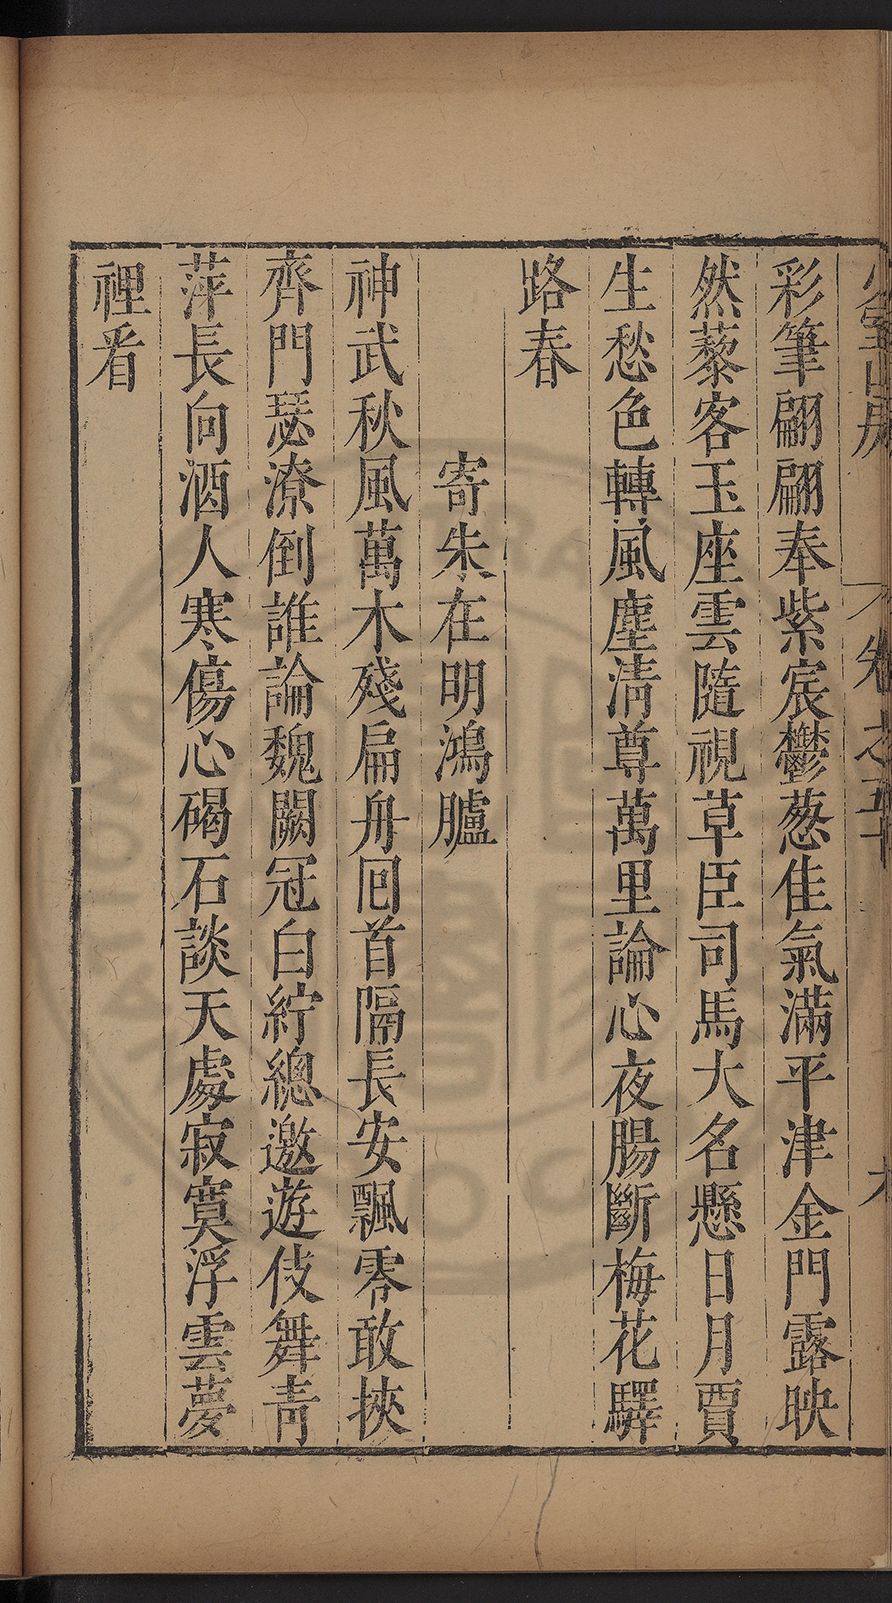 室山房 卷之五十
彩筆翩翩奉紫宸鬱葱佳氣滿平津金門露映
然藜客玉座雲隨視草臣司馬大名懸日月賈
生愁色轉風塵淸尊萬里論心夜腸斷梅花驛
路春
寄朱在明鴻臚
神武秋風萬木殘扁舟囘首隔長安飄零敢挾
齊門瑟潦倒誰論魏闕冠白紵總邀遊伎舞靑
萍長向酒人寒傷心碣石談天處寂寞浮雲夢
裡看